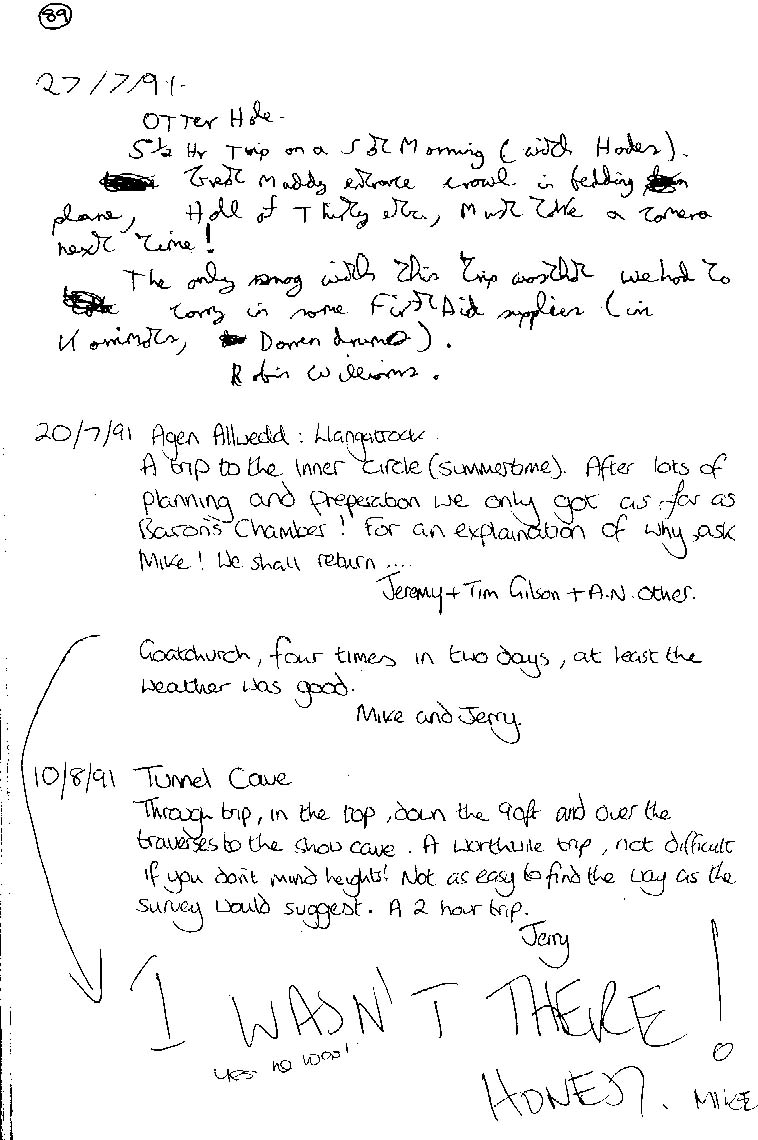 89
27/7/91.
OTTer Hole.
5½ Hr Trip on a Sat Morning (with Hades).
Great Muddy entrance crawl in bedding
plane, Hall of Thirty etc, Must take a camera
next time!
The only snag with this trip was that we had to
carry in some First Aid supplies (in
Daren drums).
Robin Williams.
20/7/91 Agen Allwedd : Llangattock.
A trip to the Inner Circle (summertime). After lots of
planning and preperation we only got as far as
Baron's Chamber! For an explaination of why, ask
Mike! We shall return ....
Jeremy + Tim Gilson + A.N. Other.
Goatchurch, four times in two days, at least the
weather was good.
Mike and Jerry.
10/8/91 Tunnel Cave
Through trip, in the top, down the 90ft and over the
traverses to the show cave. A worthwile trip, not difficult
if you don't mind heights! Not as easy to find the way as the
survey would suggest. A 2 hour trip.
Jerry
I WASN'T THERE!
YES HE WAS!
HONEST. MIKE